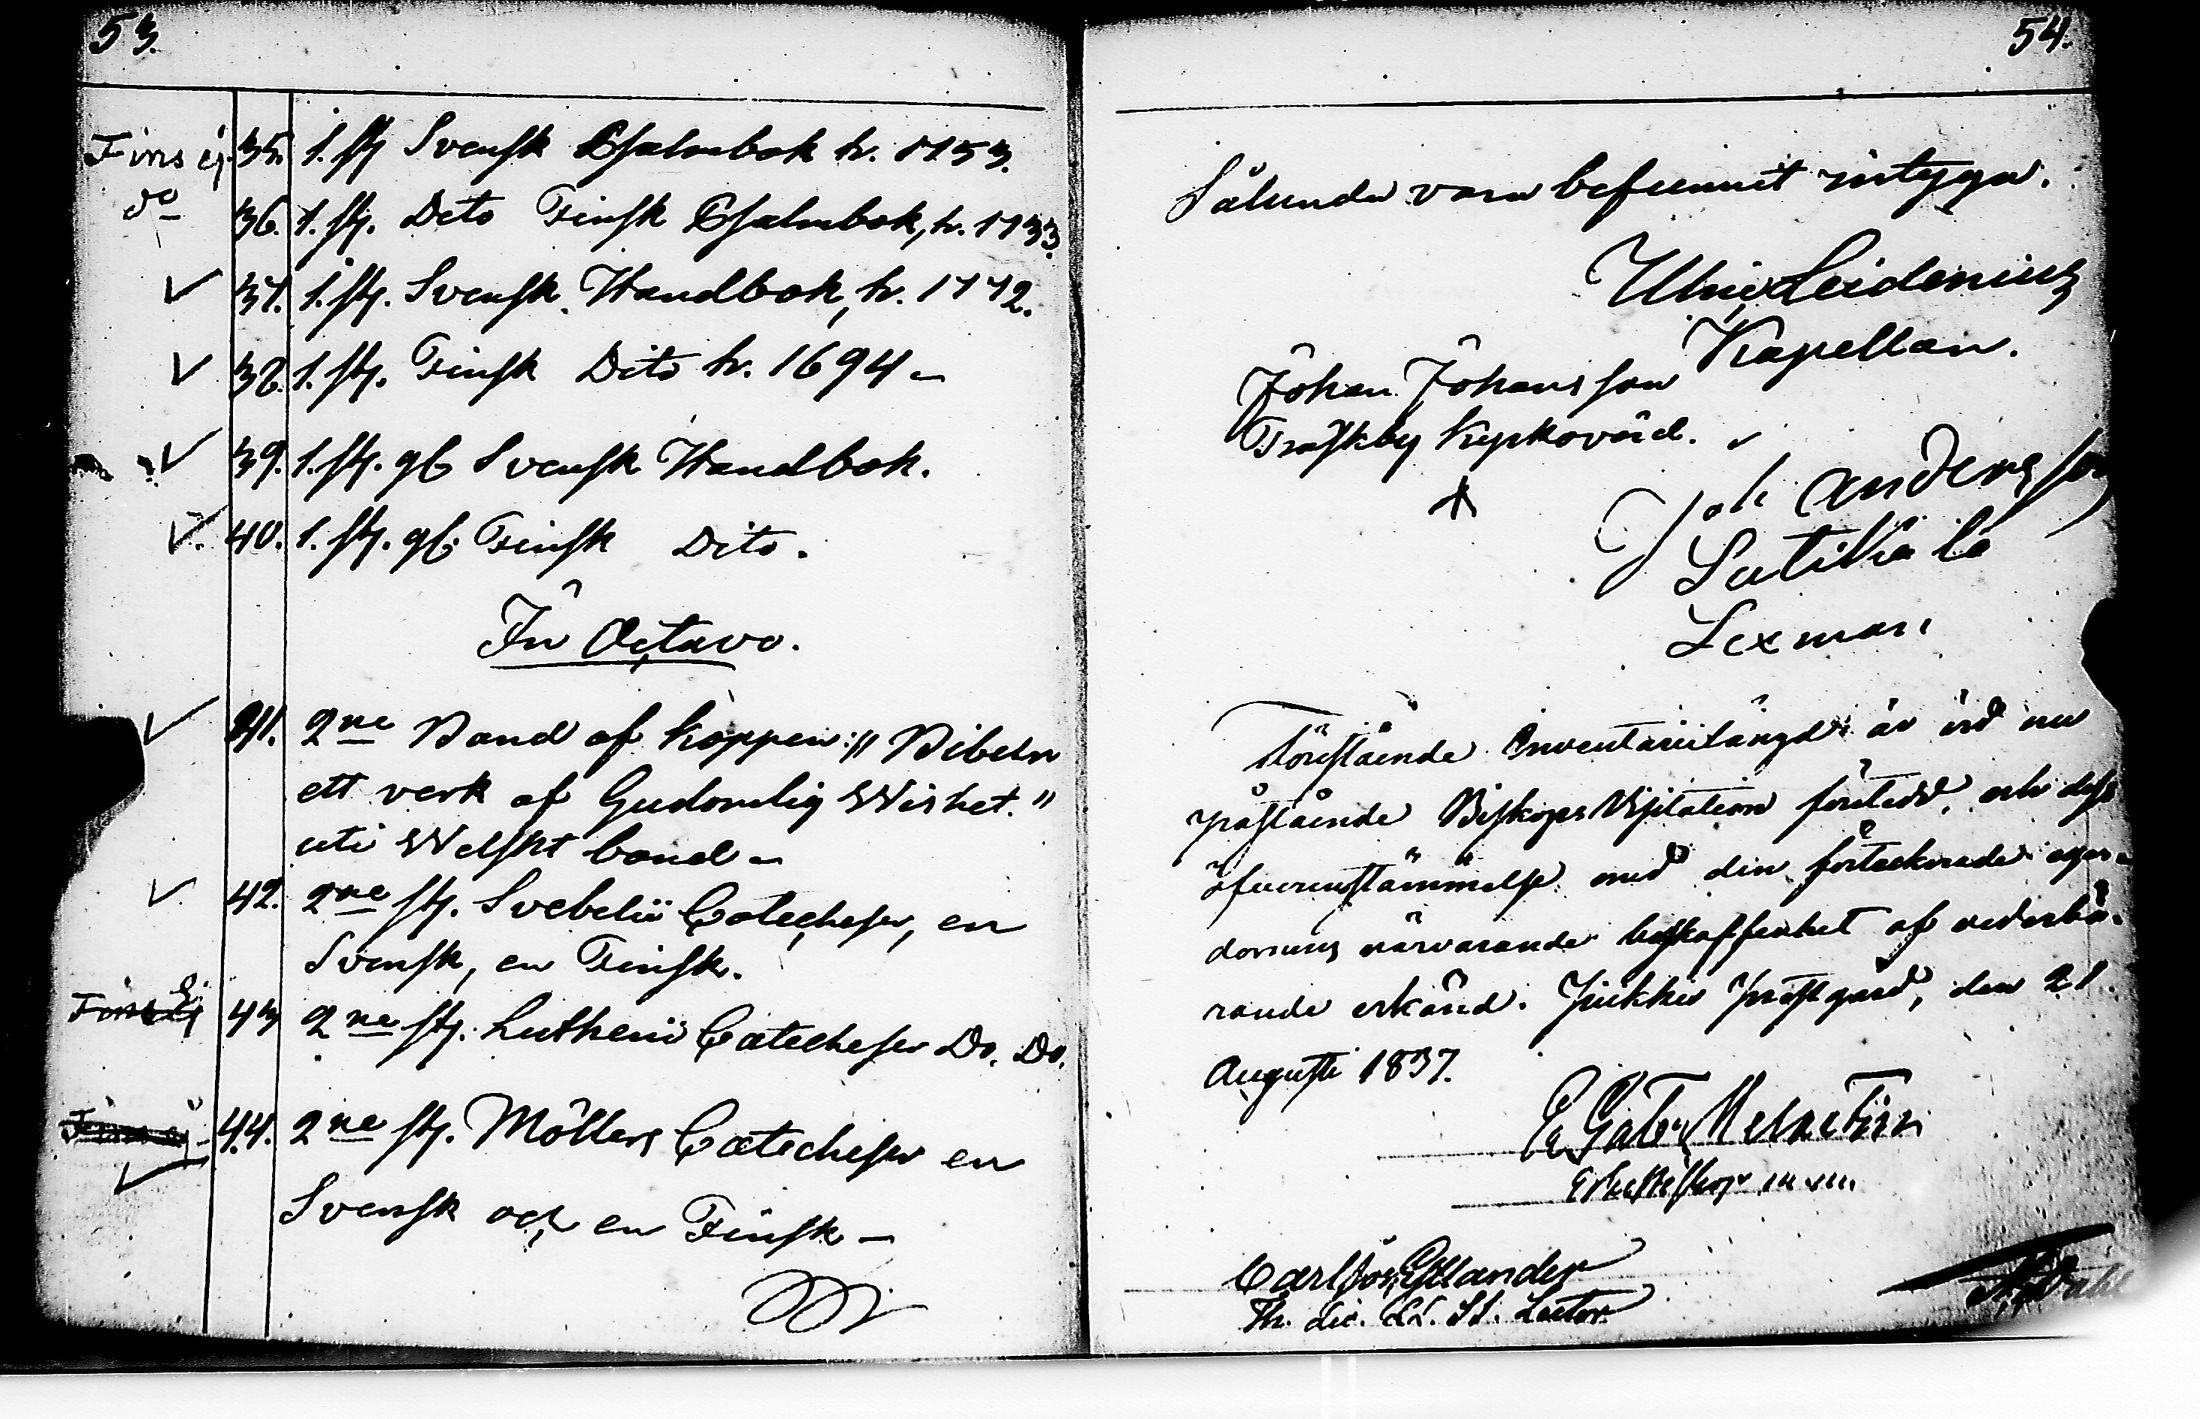 53.
Fins ej. 35. 1. st Svensk Psalmbok tr. 1753.
do 36. 1. st. Dito Finsk Psalmbok, tr. 1733.
✓ 37. 1. st. Svensk Handbok, tr. 1772.
✓ 38. 1. st. Finsk Dito tr. 1694 –
✓ 39. 1. st. gl Svensk Handbok.
✓ 40. 1. st. gl. Finsk Dito.
In Octavo.
✓ 41. 2ne Band af Koppen: "Bibeln
ett verk af Gudomlig Wishet."
uti Welskt band –
✓ 42. 2ne st. Svebelii Catecheser, en
Svensk, en Finsk.
Fins Ej 43 2ne st. Lutheri Catecheser Do. Do.
Finns ej 44. 2ne st. Möllers Catecheser en
✓
Svensk och en Finsk –
54.
Sålunda vara befunnit intyga.
Ulric Leidenius
Kapellan.
Johan Johansson
Träskby Kyrkovärd.
Joh Andersson
Lutikala
Sexman
Förestående Inventarielängd är vid nu
påstående Biskops Visitation företedd, och dess
öfverensstämmelse med den förtecknade egen-
domens närvarande beskaffenhet af vederbö-
rande erkänd. Pikkis Prästgård, den 21
Augusti 1837.
E Gabr. Melartin
Erkebiskop
Carl Gyllander
Th. Lic. Lector